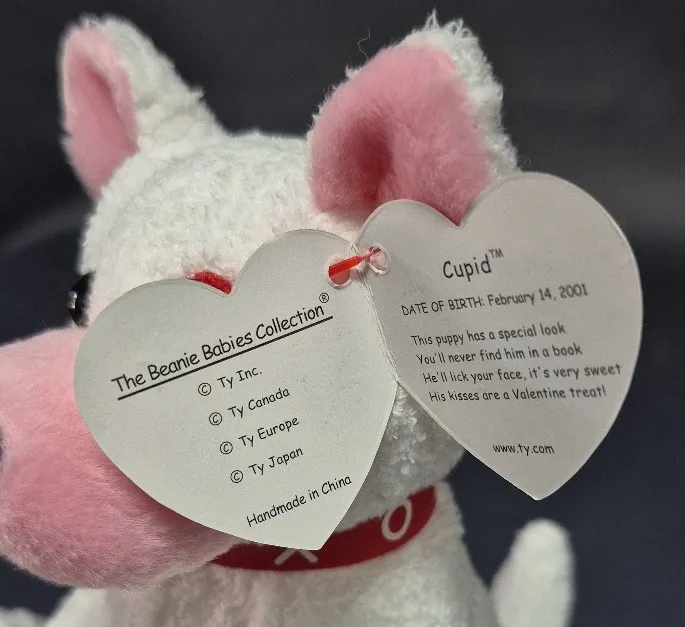 The Beanie Babies Collection®
© Ty Inc.
© Ty Canada
© Ty Europe
© Ty Japan
Handmade in China
Cupid™
DATE OF BIRTH: February 14, 2001
This puppy has a special look
You'll never find him in a book
He'll lick your face, it's very sweet
His kisses are a Valentine treat!
www.ty.com
X O